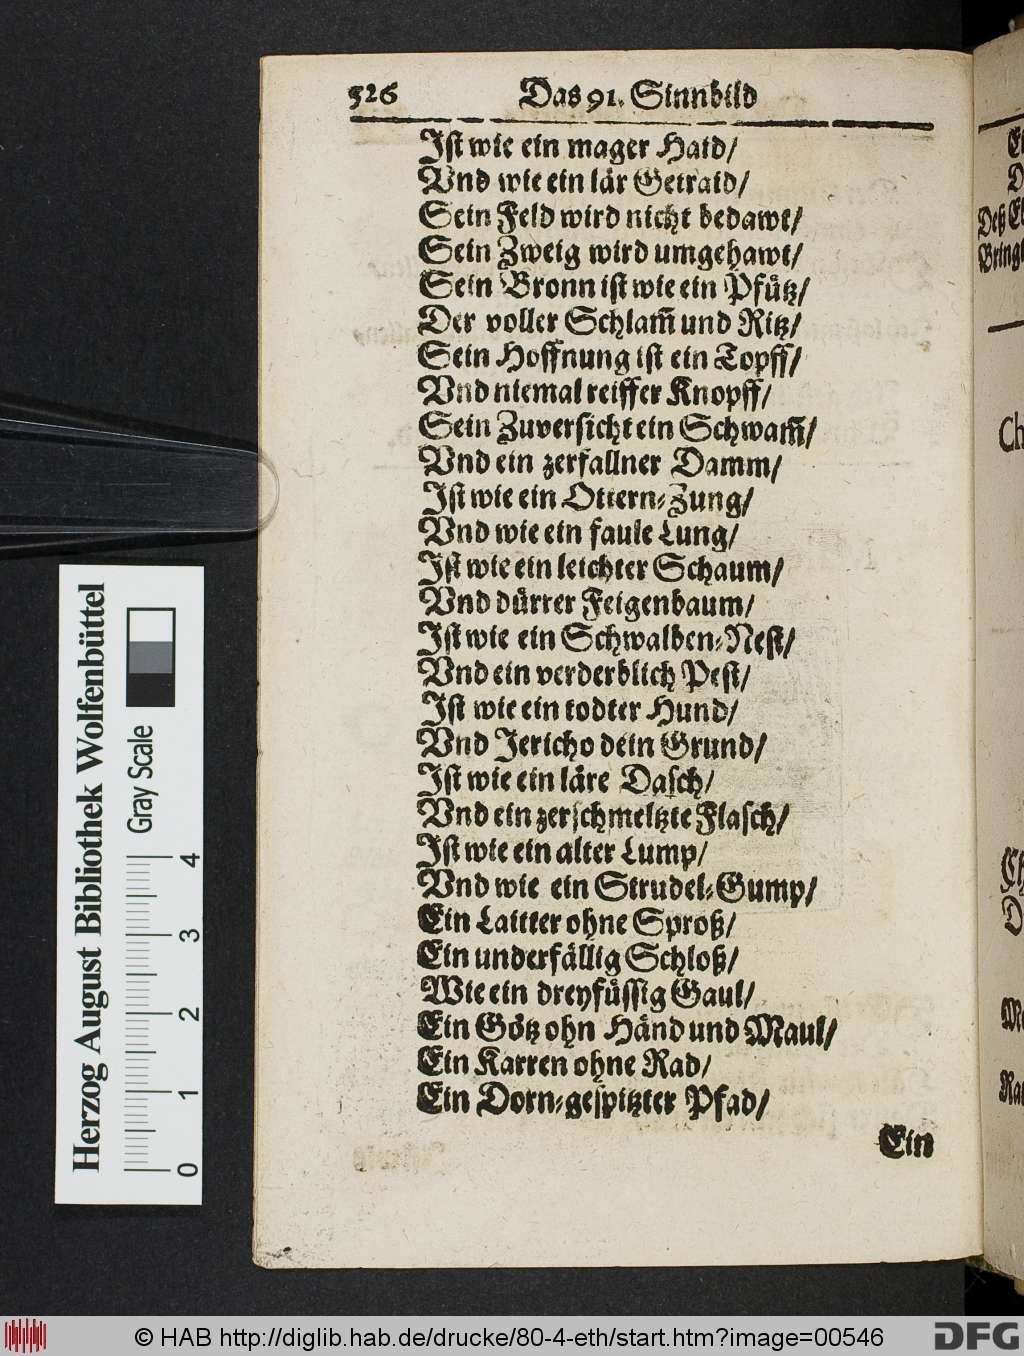 526 Das 91. Sinnbild
Ist wie ein mager Haid/
Vnd wie ein lär Getraid/
Sein Feld wird nicht bedawt/
Sein Zweig wird umgehawt/
Sein Bronn ist wie ein Pfütz/
Der voller Schlam̃ und Ritz/
Sein Hoffnung ist ein Topff/
Vnd niemal reiffer Knopff/
Sein Zuversicht ein Schwam̃/
Vnd ein zerfallner Damm/
Ist wie ein Ottern-Zung/
Vnd wie ein faule Lung/
Ist wie ein leichter Schaum/
Vnd dürrer Feigenbaum/
Ist wie ein Schwalben-Nest/
Vnd ein verderblich Pest/
Ist wie ein todter Hund/
Vnd Jericho dein Grund/
Ist wie ein läre Dasch/
Vnd ein zerschmeltzte Flasch/
Ist wie ein alter Lump/
Vnd wie ein Strudel-Gump/
Ein Laitter ohne Sproß/
Ein underfällig Schloß/
Wie ein dreyfüssig Gaul/
Ein Götz ohn Händ und Maul/
Ein Karren ohne Rad/
Ein Dorn-gespitzter Pfad/
Ein
Herzog August Bibliothek Wolfenbüttel
Gray Scale
0 1 2 3 4
© HAB http://diglib.hab.de/drucke/80-4-eth/start.htm?image=00546
DFG